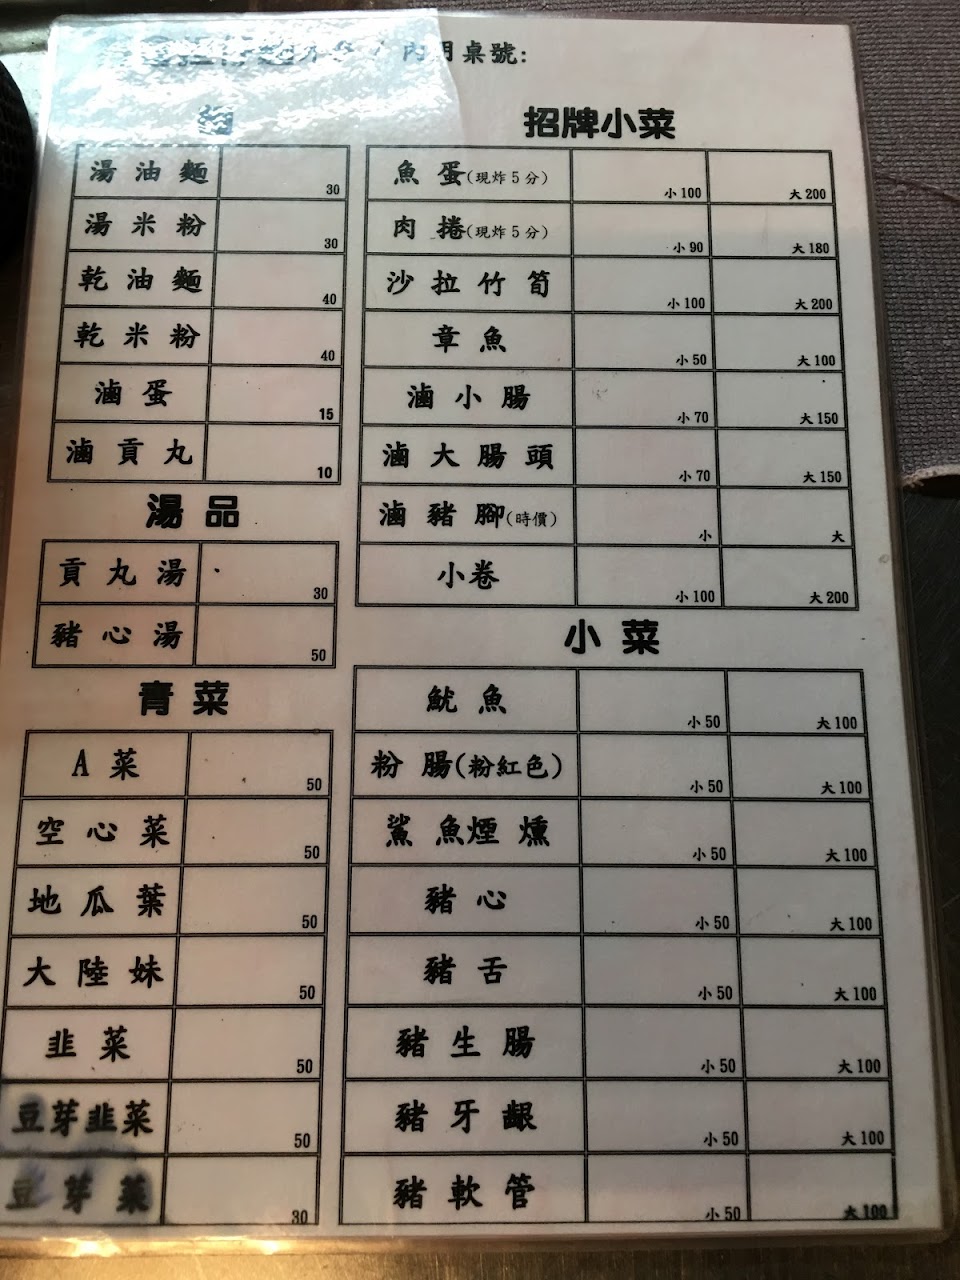 內用桌號:
麵
湯油麵 30
湯米粉 30
乾油麵 40
乾米粉 40
滷蛋 15
滷貢丸 10
湯品
貢丸湯 30
豬心湯 50
青菜
A菜 50
空心菜 50
地瓜葉 50
大陸妹 50
韭菜 50
豆芽韭菜 50
豆芽菜 30
招牌小菜
魚蛋(現炸5分) 小100 大200
肉捲(現炸5分) 小90 大180
沙拉竹筍 小100 大200
章魚 小50 大100
滷小腸 小70 大150
滷大腸頭 小70 大150
滷豬腳(時價) 小 大
小卷 小100 大200
小菜
魷魚 小50 大100
粉腸(粉紅色) 小50 大100
鯊魚煙燻 小50 大100
豬心 小50 大100
豬舌 小50 大100
豬生腸 小50 大100
豬牙齦 小50 大100
豬軟管 小50 大100